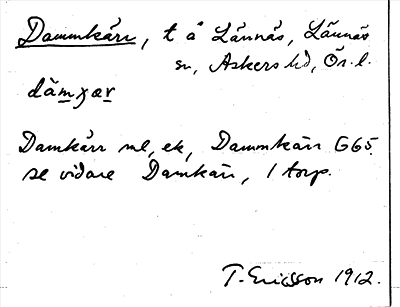 Dammkärr, t å Lännäs, Lännäs
sn, Askers hd, Ör. l.
dàmχær
Damkärr ne, ek, Dammkärr G65.
se vidare Damkärr, 1 torp.
T. Ericsson 1912.